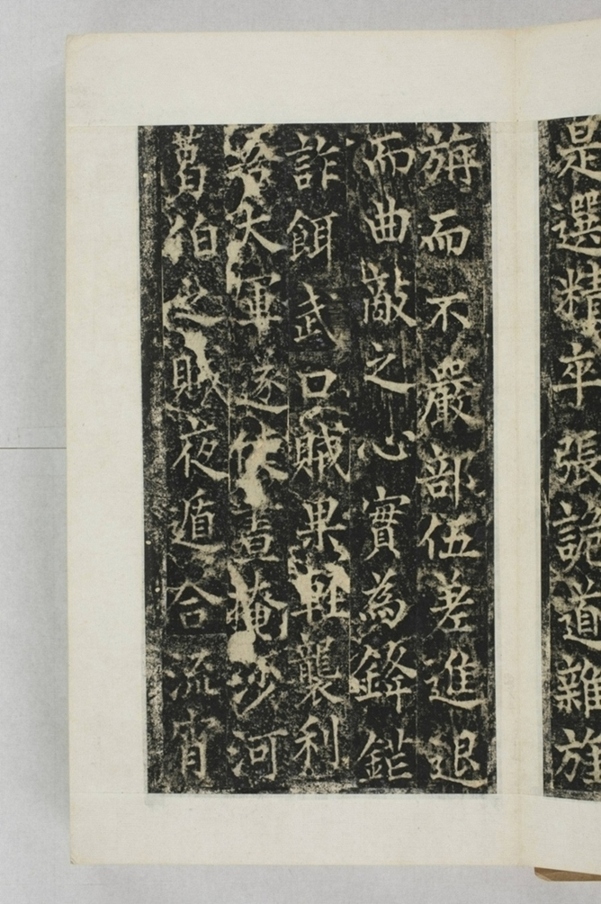 是選精卒張詭道雜旌
斾而不嚴部伍差進退
而曲敵之心實為鋒鎧
詐餌武口賊果輕襲利
大軍遂晝掩沙河
葛伯之賊夜遁合流宵